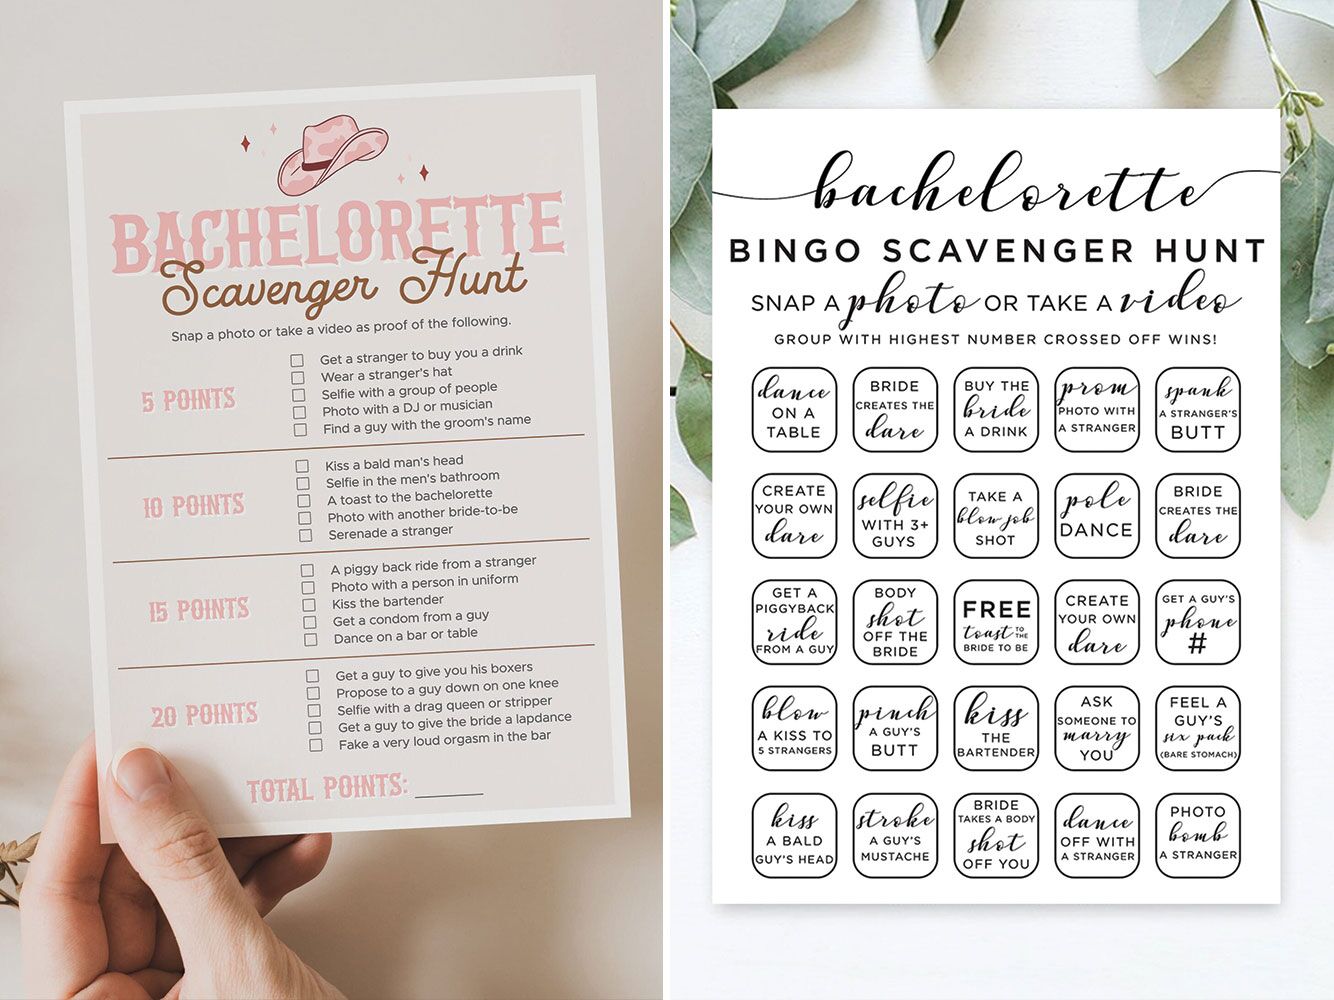 BACHELORETTE
Scavenger Hunt
Snap a photo or take a video as proof of the following.
5 POINTS
Get a stranger to buy you a drink
Wear a stranger's hat
Selfie with a group of people
Photo with a DJ or musician
Find a guy with the groom's name
10 POINTS
Kiss a bald man's head
Selfie in the men's bathroom
A toast to the bachelorette
Photo with another bride-to-be
Serenade a stranger
15 POINTS
A piggy back ride from a stranger
Photo with a person in uniform
Kiss the bartender
Get a condom from a guy
Dance on a bar or table
20 POINTS
Get a guy to give you his boxers
Propose to a guy down on one knee
Selfie with a drag queen or stripper
Get a guy to give the bride a lapdance
Fake a very loud orgasm in the bar
TOTAL POINTS:
bachelorette
BINGO SCAVENGER HUNT
SNAP A photo OR TAKE A video
GROUP WITH HIGHEST NUMBER CROSSED OFF WINS!
dance
ON A
TABLE
BRIDE
CREATES THE
dare
BUY THE
bride
A DRINK
prom
PHOTO WITH
A STRANGER
spank
A STRANGER'S
BUTT
CREATE
YOUR OWN
dare
selfie
WITH 3+
GUYS
TAKE A
blow job
SHOT
pole
DANCE
BRIDE
CREATES THE
dare
GET A
PIGGYBACK
ride
FROM A GUY
BODY
shot
OFF THE
BRIDE
FREE
toast TO THE
BRIDE TO BE
CREATE
YOUR OWN
dare
GET A GUY'S
phone
#
blow
A KISS TO
5 STRANGERS
pinch
A GUY'S
BUTT
kiss
THE
BARTENDER
ASK
SOMEONE TO
marry
YOU
FEEL A
GUY'S
six pack
(BARE STOMACH)
kiss
A BALD
GUY'S HEAD
stroke
A GUY'S
MUSTACHE
BRIDE
TAKES A BODY
shot
OFF YOU
dance
OFF WITH
A STRANGER
PHOTO
bomb
A STRANGER